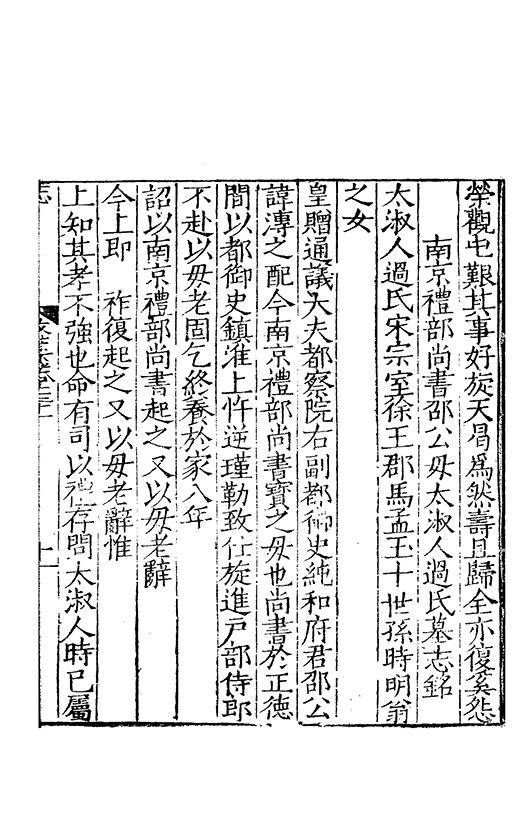 榮觀屯艱其事好旋天曷爲然壽且歸全亦復奚怨
南京禮部尚書邵公母太淑人過氏墓志銘
太淑人過氏宋宗室蔡王郡馬孟玉十世孫時明翁
之女
皇贈通議大夫都察院右副都御史純和府君邵公
諱溥之配今南京禮部尚書寶之母也尚書於正德
間以都御史鎮淮上忤逆瑾勒致仕旋進戶部侍郎
不赴以母老固乞終養於家八年
詔以南京禮部尚書起之又以母老辭
今上即 祚復起之又以母老辭惟
上知其孝不強也命有司以禮存問太淑人時已屬
志